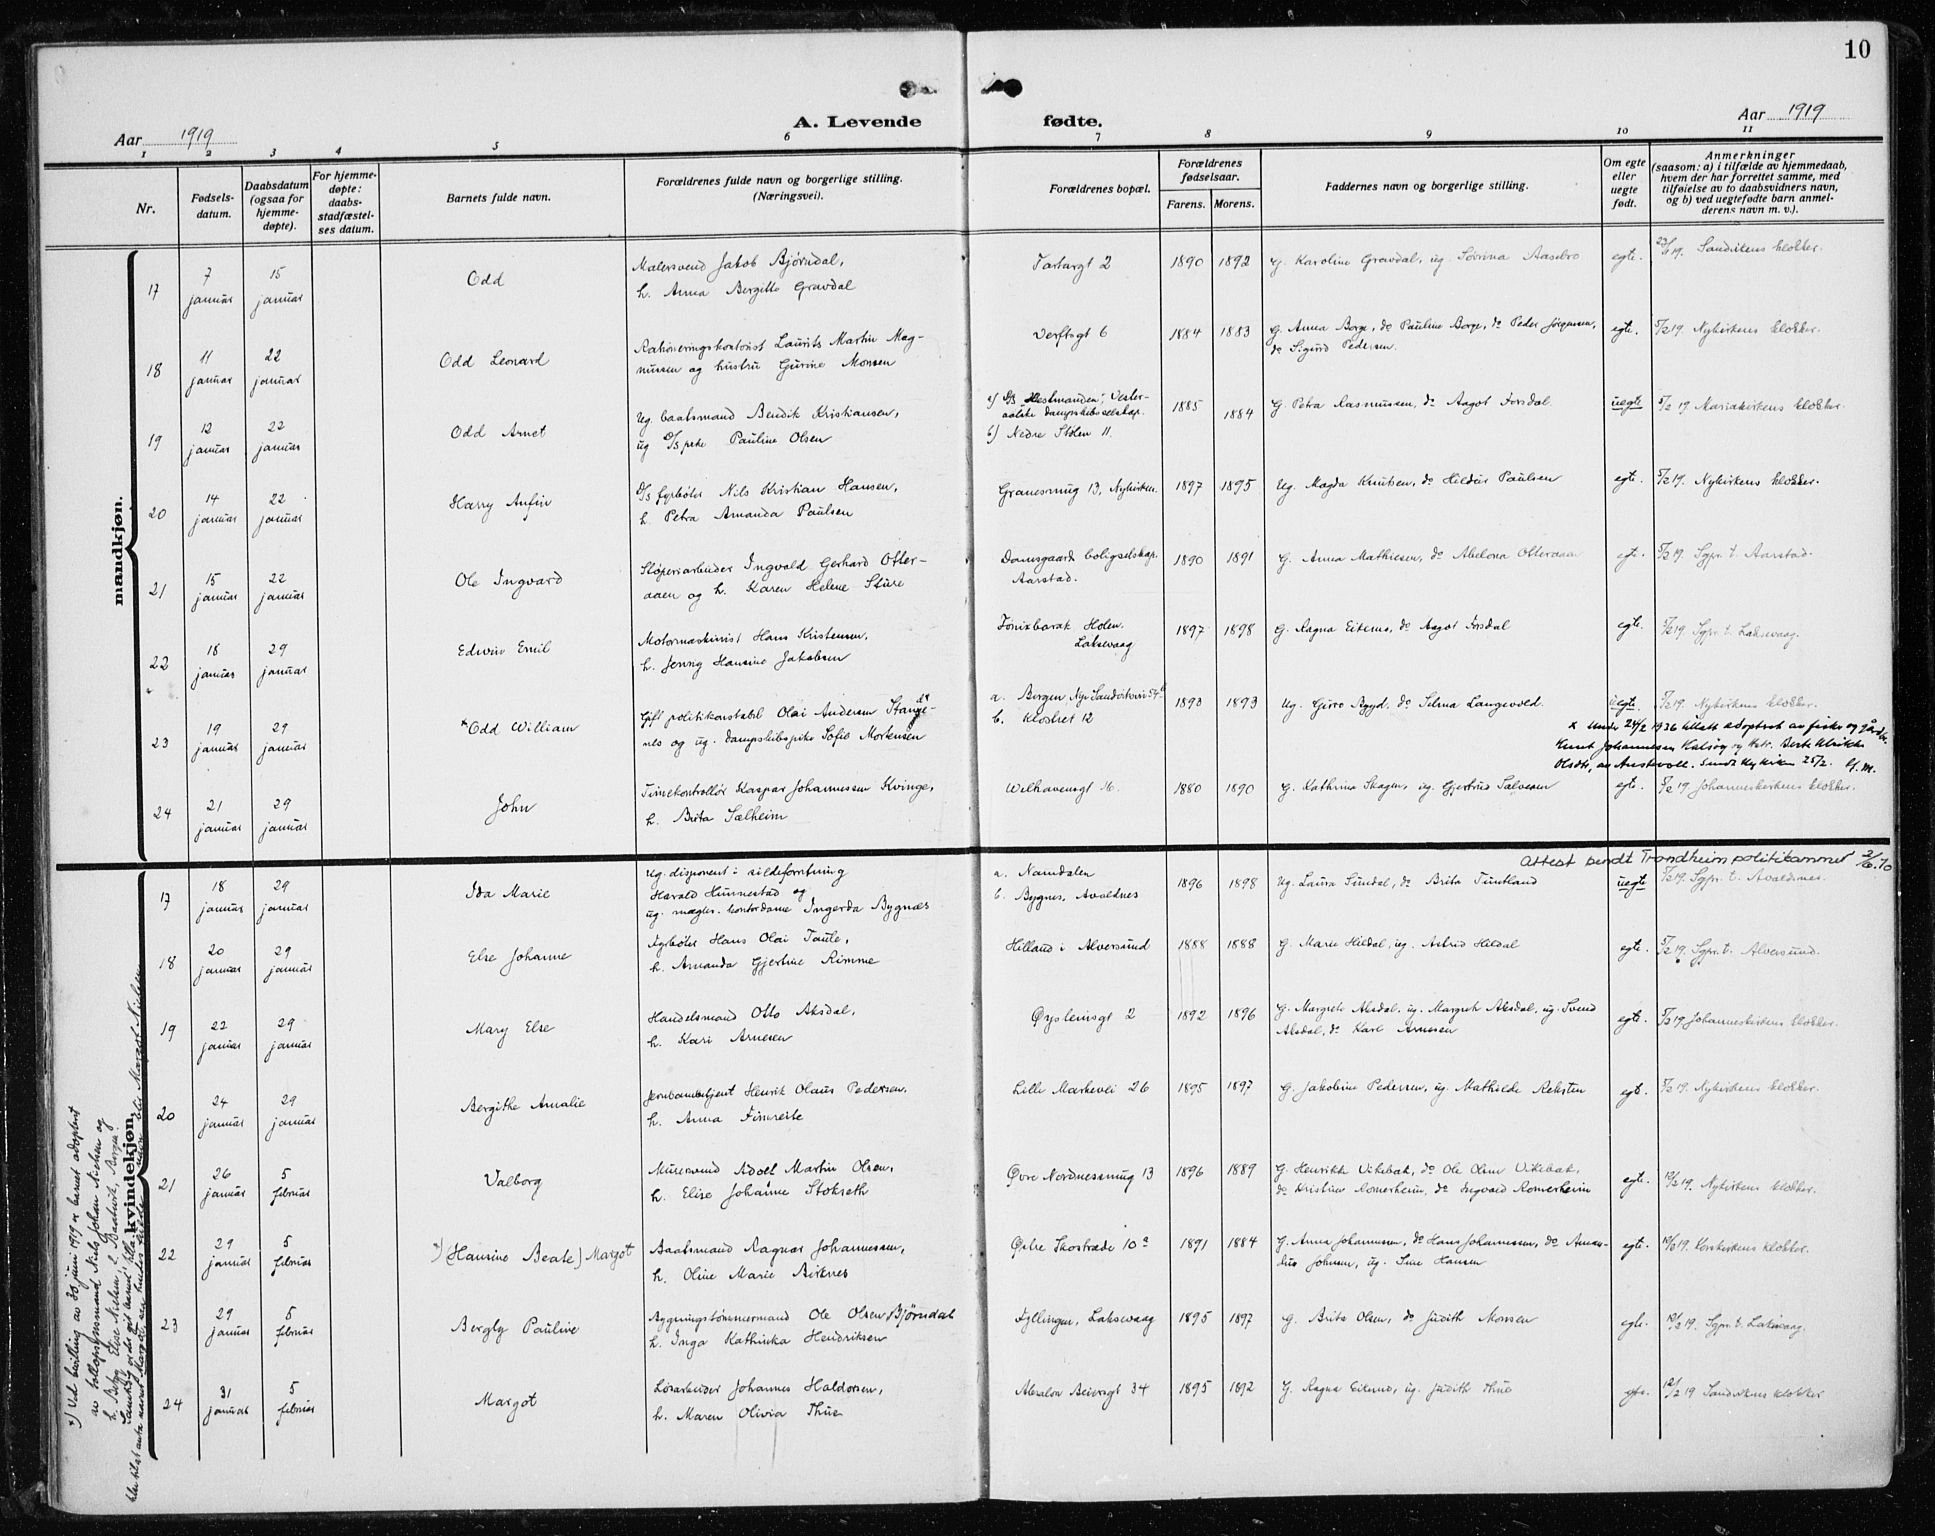 10
Aar 1919
A. Levende fødte.
Aar 1919
1 2 3 4 5 6 7 8 9 10 11
Nr.
Fødsels-
datum.
Daabsdatum
(ogsaa for
hjemme-
døpte).
For hjemme-
døpte:
daabs-
stadfæstel-
ses datum.
Barnets fulde navn.
Forældrenes fulde navn og borgerlige stilling.
(Næringsvei).
Forældrenes bopæl.
Forældrenes
fødselsaar.
Farens. Morens.
Faddernes navn og borgerlige stilling.
Om egte
eller
uegte
født.
Anmerkninger
(saasom: a) i tilfælde av hjemmedaab,
hvem der har forrettet samme, med
tilføielse av to daabsvidners navn,
og b) ved uegtefødte barn anmel-
derens navn m. v.).
mandkjøn.
17 7 januar 15 januar Odd Malersvend Jakob Bjørndal,
h. Anna Bergitte Gravdal
Tartargt 2 1890 1892 G. Karoline Gravdal, ug. Søvrina Aasebro egte. Sandvikens klokker.
18 11 januar 22 januar Odd Leonard Rationeringskontorist Laurits Martin Mag-
nussen og hustru Gurine Monsen
Verftsgt 6 1884 1883 G. Anna Borge, do Pauline Borge, do Peder Jørgensen,
do Sigurd Pedersen.
egte. 5/2 19. Nykirkens klokker.
19 12 januar 22 januar Odd Arnet Ug. baatsmand Bendik Kristiansen,
ug D/S pike Pauline Olsen
a) D/S Hestmanden, Vester-
aalske dampskibsselskap.
b) Nedre Stølen 11.
1885 1884 G. Petra Rasmussen, do Aagot Forsdal uegte 5/2 19 Mariakirkens klokker.
20 14 januar 22 januar Harry Anfin D/S fyrbøter Nils Kristian Hansen,
h. Petra Amanda Paulsen
Granesmug 13, Nykirken. 1897 1895 Ug. Magda Knutsen, do Hildur Paulsen egte. 5/2 19. Nykirkens klokker.
21 15 januar 22 januar Ole Ingvard Støperiarbeider Ingvald Gerhard Otter-
aaen og h. Karen Helene Sture
Damsgaard boligselskap.
Aarstad.
1890 1891 G. Anna Mathiesen, do Abelona Otteraaen egte. 5/2 19. Sgpr. t. Aarstad.
22 18 januar 29 januar Edwin Emil Motormaskinist Hans Kristensen,
h. Jenny Hansine Jakobsen
Fønixbarak Holen.
Laksevaag
1897 1898 G. Ragna Eiterno, do Aagot Forsdal egte. 5/2 19. Sgpr. t. Laksevaag.
23 19 januar 29 januar *Odd William Gift politikonstabel Olai Andersen Stange-
nes og ug. dampskibspike Sofie Mortensen
a. Bergen, Nye Sandviksvei 54 b
b. Klostret 12
1893 1893 Ug. Giro Rqyd, do Selma Langevold. uegte. 5/2 19. Nykirkens klokker.
x Under 24/2 1936 tillatt adoptert av fisker og gårdbr.
Knut Johannesen Kalsøy og hstr. Berte Ulrikke
Olsdtr, av Austevoll. Sendt Nykirken 25/2.
24 21 januar 29 januar John Timekontrollør Kaspar Johannessen Kvinge,
h. Brita Sælheim
Welhavensgt 1880 1890 G. Kathrine Skagen, ug. Gjertrud Salvesen egte. 5/2 19 Johanneskirkens klokker.
kvindekjøn.
Attest sendt Trondheim politikammer 2/6.70
17 18 januar 29 januar Ida Marie Ug. disponent i sildeforretning
Harald Hunnestad og
ug. mægler. kontordame Ingerda Bygnæs
a. Namdalen
b. Bygnes, Avaldnes
1896 1898 Ug. Laura Sundal, do Brita Tuntland uegte 5/2 19. Sgpr. t. Avaldsnes.
18 20 januar 29 januar Else Johanne Fyrbøter Hans Olai Taule,
h. Amanda Gjertine Rimme
Hilland i Alversund 1888 1888 G. Marie Hildal, ug. Astrid Hildal egte. 5/2 19. Sgpr. t. Alversund.
19 22 januar 29 januar Mary Else Handelsmand Otto Aksdal,
h. Kari Arnesen
Øysteinsgt 2 1892 1896 G. Margrete Aksdal, ug. Margreth Aksdal, ug. Svend
Aksdal, do Karl Arnesen
egte. 5/2 19 Johanneskirkens klokker.
20 24 januar 29 januar Bergithe Amalie Jernbanebetjent Henrik Olaus Pedersen,
h. Anna Fimreite
Lille Markevei 26 1895 1897 G. Jakobine Pedersen, ug. Mathilde Reksten egte. 5/2 19. Nykirkens klokker.
21 26 januar 5 februar Valborg Murersvend Adolf Martin Olsen,
h. Elise Johanne Stokseth
Øvre Nordnessmug 13 1896 1889 G. Henrikk Vikebak, do Ole Olsen Vikebak,
do Kristine Romerheim, do Ingvald Romerheim
egte. 10/2 19. Nykirkens klokker.
22 29 januar 5 februar *) (Hansine Beate) Margot Baatsmand Ragnar Johannessen,
h. Oline Marie Birknes
Østre Skostræde 10a 1891 1884 G. Anna Johannesen, do Hans Johannessen, do Aman-
dus Johnsen, ug. Sine Hansen
egte. 10/2 19. Korskirkens klokker.
23 29 januar 5 februar Bergly Pauline Bygningstømmermand Ole Olsen Bjørndal
h. Inga Kathinka Hendriksen
Fyllingen, Laksevaag 1895 1897 G. Brita Olsen, do Judith Monsen egte. 10/2 19. Sgpr. t. Laksevaag.
24 31 januar 5 februar Margot Løsarbeider Johannes Haldorsen,
h. Maren Olivia Thue
Absalon Beiersgt 34 1895 1892 G. Ragna Eiterno, ug. Judith Thue egte. 12/2 19 Sandvikens klokker
*) Ved bevilling av 30 juni 1919 er barnet adoptert
av Nils Johan Nielsen og
h. Else Nielsen, Bergen.
Samtidig er det git barnet tilla-